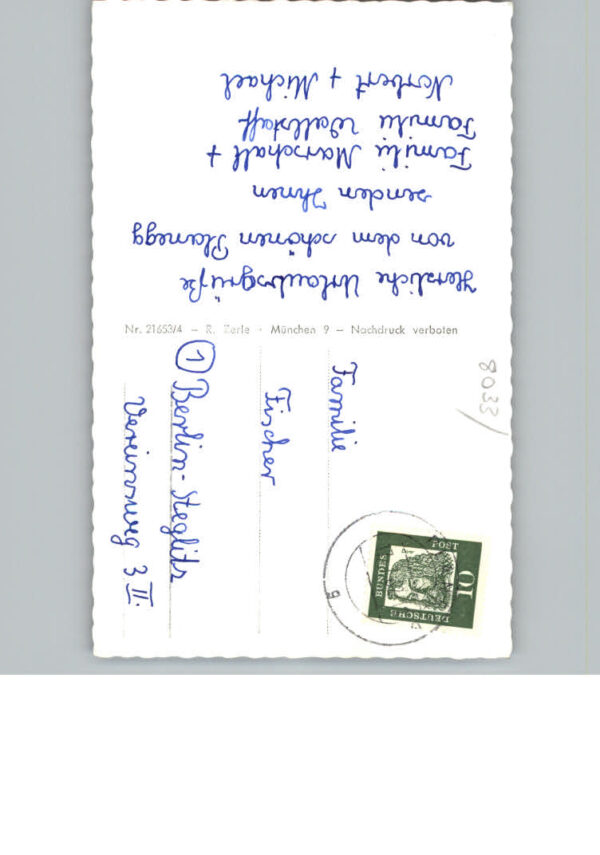 Herzliche Urlaubsgrüße
von dem schönen Planegg
senden Ihnen
Familie Marschall +
Familie Wallstaff
Norbert + Michael
Nr. 21653/4 – R. Zerle · München 9 – Nachdruck verboten
Familie
Fischer
① Berlin-Steglitz
Vereinsweg 3 II.
8033
DEUTSCHE
BUNDES
POST
10